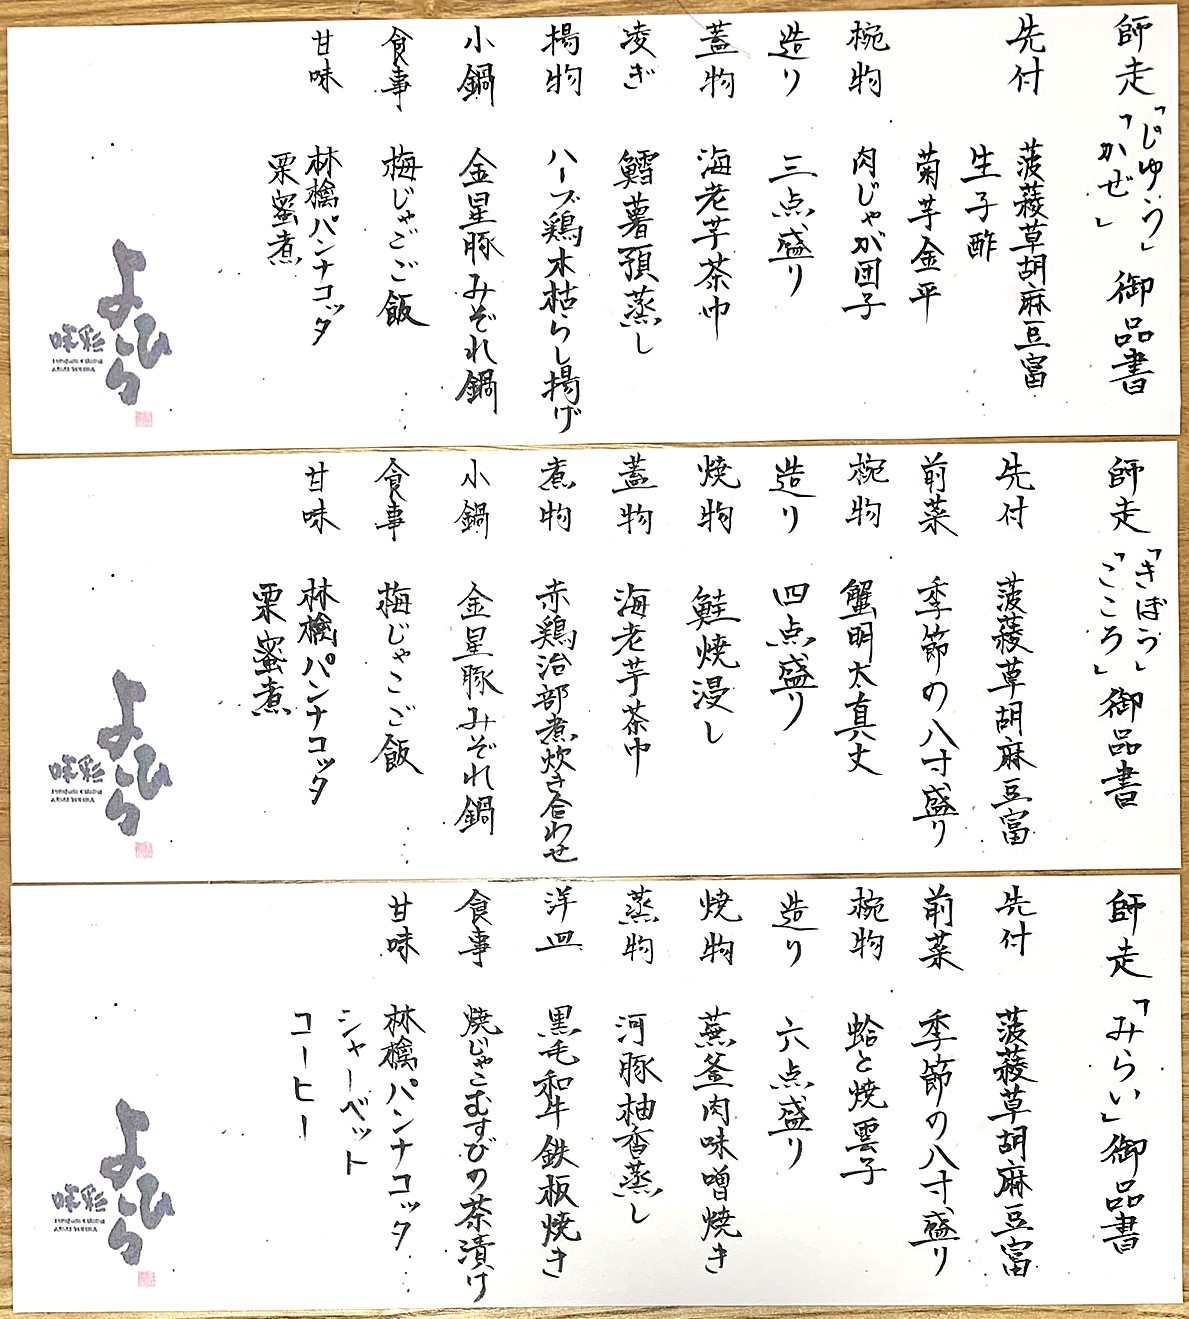 師走「じゆう」「かぜ」御品書
先付 菠薐草胡麻豆富
生子酢
菊芋金平
椀物 肉じゃが団子
造り 三点盛り
蓋物 海老芋茶巾
凌ぎ 鱈薯預蒸し
揚物 ハーブ鶏木枯らし揚げ
小鍋 金星豚みぞれ鍋
食事 梅じゃこご飯
甘味 林檎パンナコッタ
栗蜜煮
味彩 よひら
師走「きぼう」「こころ」御品書
先付 菠薐草胡麻豆富
前菜 季節の八寸盛り
椀物 蟹明太真丈
造り 四点盛り
焼物 鮭焼浸し
蓋物 海老芋茶巾
煮物 赤鶏治部煮炊き合わせ
小鍋 金星豚みぞれ鍋
食事 梅じゃこご飯
甘味 林檎パンナコッタ
栗蜜煮
味彩 よひら
師走「みらい」御品書
先付 菠薐草胡麻豆富
前菜 季節の八寸盛り
椀物 蛤と焼雲子
造り 六点盛り
焼物 蕪釜肉味噌焼き
蒸物 河豚柚香蒸し
洋皿 黒毛和牛鉄板焼き
食事 焼じゃこむすびの茶漬け
甘味 林檎パンナコッタ
シャーベット
コーヒー
味彩 よひら